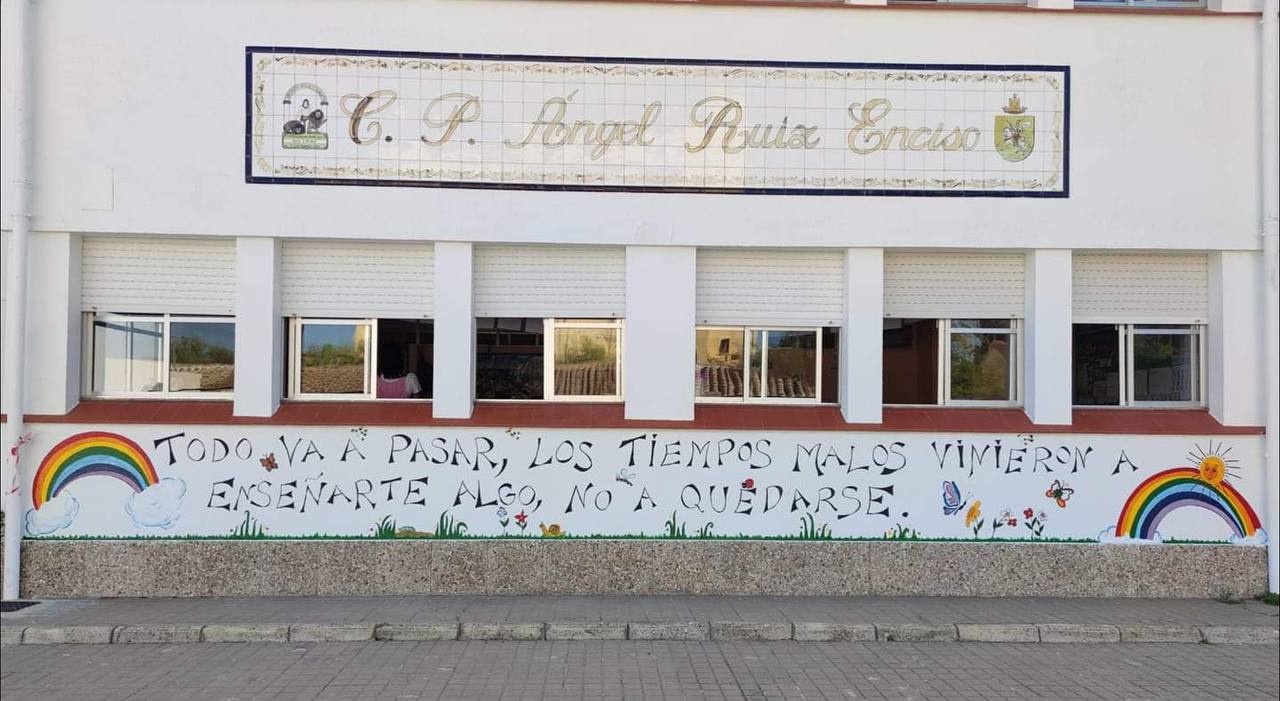 C. P. Ángel Ruiz Enciso
TODO VA A PASAR, LOS TIEMPOS MALOS VINIERON A
ENSEÑARTE ALGO, NO A QUEDARSE.